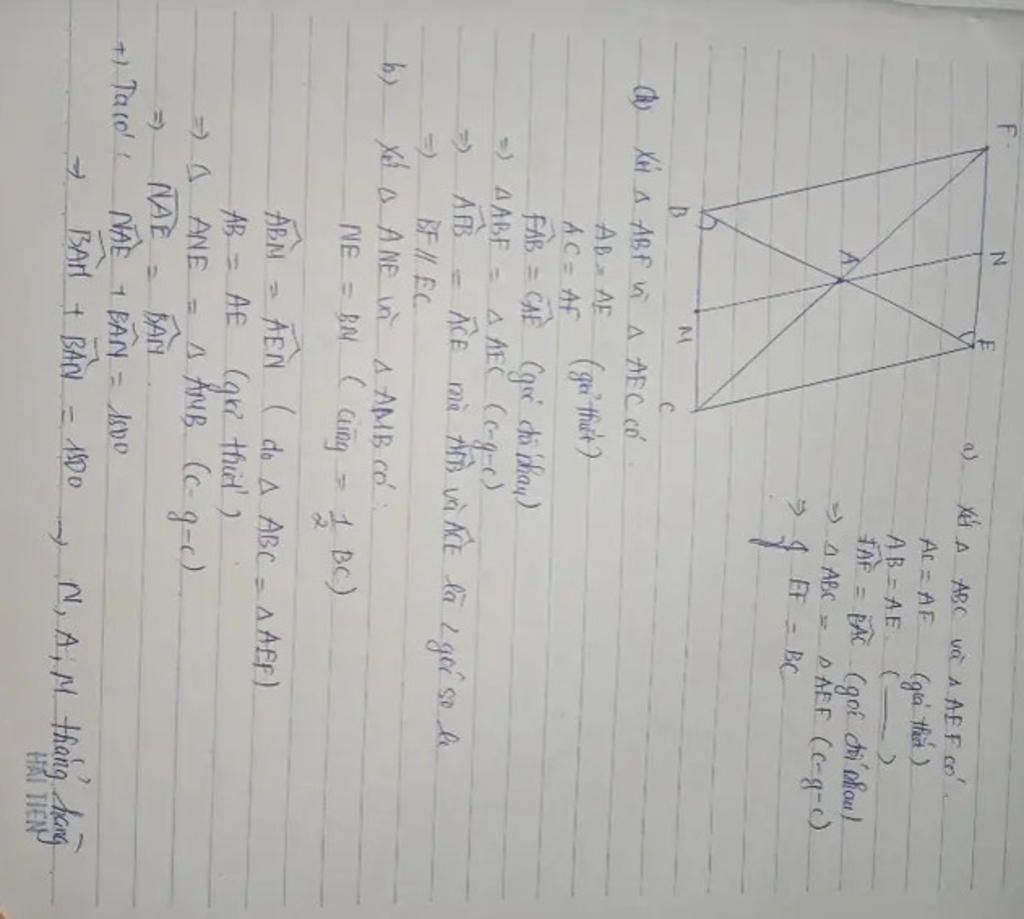 F
N
E
A
B
M
C
a) Xét Δ ABC và Δ AEF có.
AC = AF (giả thiết)
AB = AE (——)
FAE = BAC (góc đối nhau)
⇒ Δ ABC = Δ AEF (c-g-c)
⇒ EF = BC
Xét Δ ABF và Δ AEC có.
AB = AE
AC = AF (giả thiết)
FAB = CAE (góc đối nhau)
⇒ Δ ABF = Δ AEC (c-g-c)
⇒ AFB = ACE mà AFB và ACE là 2 góc so le
⇒ BF // EC.
b) Xét Δ ANE và Δ AMB có:
NE = BM (cùng = 1/2 BC)
ABM = AEN (do Δ ABC = Δ AEF)
AB = AE (giả thiết)
⇒ Δ ANE = Δ AMB (c-g-c)
⇒ NAE = BAM
+) Ta có: NAE + BAN = 180
→ BAM + BAN = 180 → N, A, M thẳng hàng
HẢI TIẾN